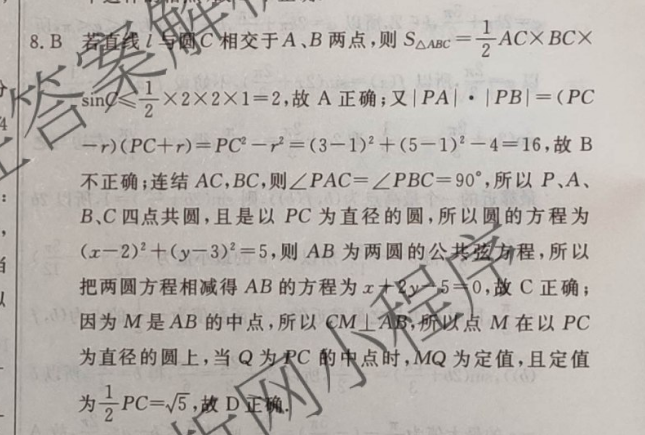 8. B 若直线 l 与圆 C 相交于 A、B 两点,则 S△ABC = 1/2 AC×BC×
sinC≤1/2×2×2×1=2,故 A 正确;又|PA|·|PB|=(PC
-r)(PC+r)=PC²-r²=(3-1)²+(5-1)²-4=16,故 B
不正确;连结 AC,BC,则∠PAC=∠PBC=90°,所以 P、A、
B、C 四点共圆,且是以 PC 为直径的圆,所以圆的方程为
(x-2)²+(y-3)²=5,则 AB 为两圆的公共弦方程,所以
把两圆方程相减得 AB 的方程为 x+2y-5=0,故 C 正确;
因为 M 是 AB 的中点,所以 CM⊥AB,所以点 M 在以 PC
为直径的圆上,当 Q 为 PC 的中点时,MQ 为定值,且定值
为 1/2 PC=√5,故 D 正确.